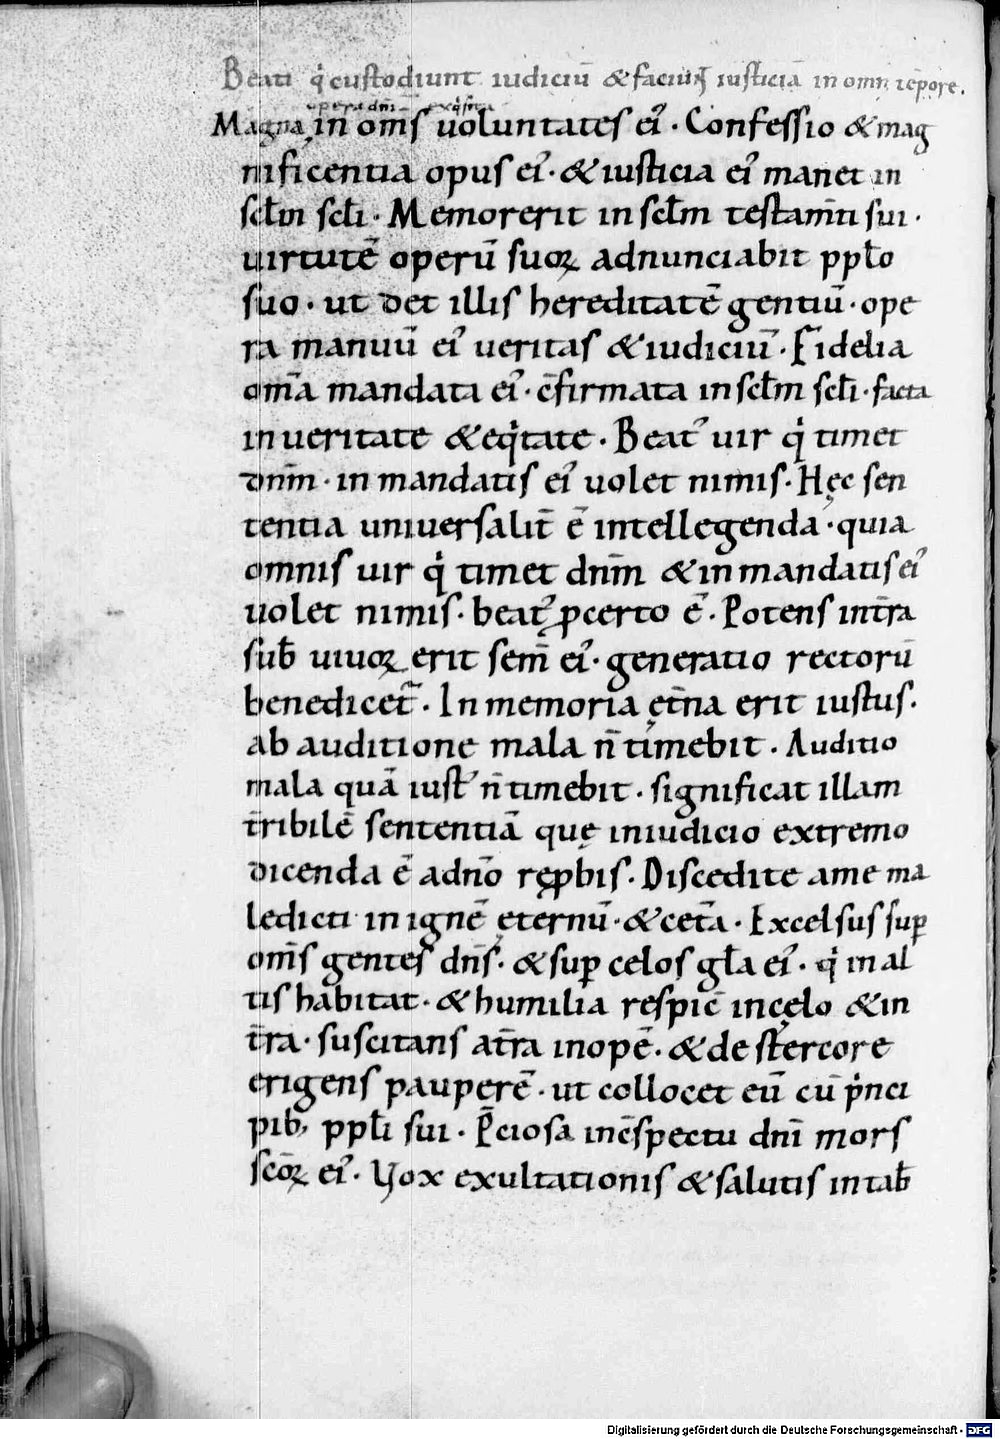 Beati q̇ custodiunt iudiciū & faciūt iusticiā in omni tēpore.
opera dn̄i exq̇sita
Magna in om̄s uoluntates ei᾽. Confessio & mag
nificentia opus ei᾽. & iusticia ei᾽ manet in
sc̄lm sc̄li. Memor erit in sc̄lm testam̄ti sui.
uirtutē operū suoꝝ adnunciabit ppl̄o
suo. ut det illis hereditatē gentiū. ope
ra manuū ei᾽ ueritas & iudiciū. Fidelia
om̄a mandata ei᾽. c̄firmata in sc̄lm sc̄li. facta
in ueritate & eq̇tate. Beat᾽ uir q̇ timet
dn̄m. in mandatis ei᾽ uolet nimis. Hęc sen
tentia uniuersalit̄ ē intellegenda. quia
omnis uir q̇ timet dn̄m & in mandatis ei᾽
uolet nimis. beat᾽ ꝓcerto ē. Potens in t̄ra
sub̄ uiuoꝝ erit sem̄ ei᾽. generatio rectorū
benedicet᷑. In memoria ęt̄na erit iustus.
ab auditione mala n̄ timebit. Auditio
mala quā iust᾽ n̄ timebit. significat illam
t̄ribilē sententiā quę in iudicio extremo
dicenda ē a dn̄o rep̱bis. Discedite a me ma
ledicti in ignē ęternū. & cet̄a. Excelsus suꝑ
om̄s gentes dn̄s. & suꝑ celos gl̄a ei᾽. q̇ in al
tis habitat. & humilia respic̄ in cęlo & in
t̄ra. suscitans at̄ra inopē. & de stercore
erigens pauperē. ut collocet eū cū ṗnci
pib; ppl̄i sui. P̄ciosa in c̄spectu dn̄i mors
sc̄oꝝ ei᾽. Uox exultationis & salutis in tab̄
Digitalisierung gefördert durch die Deutsche Forschungsgemeinschaft - DFG